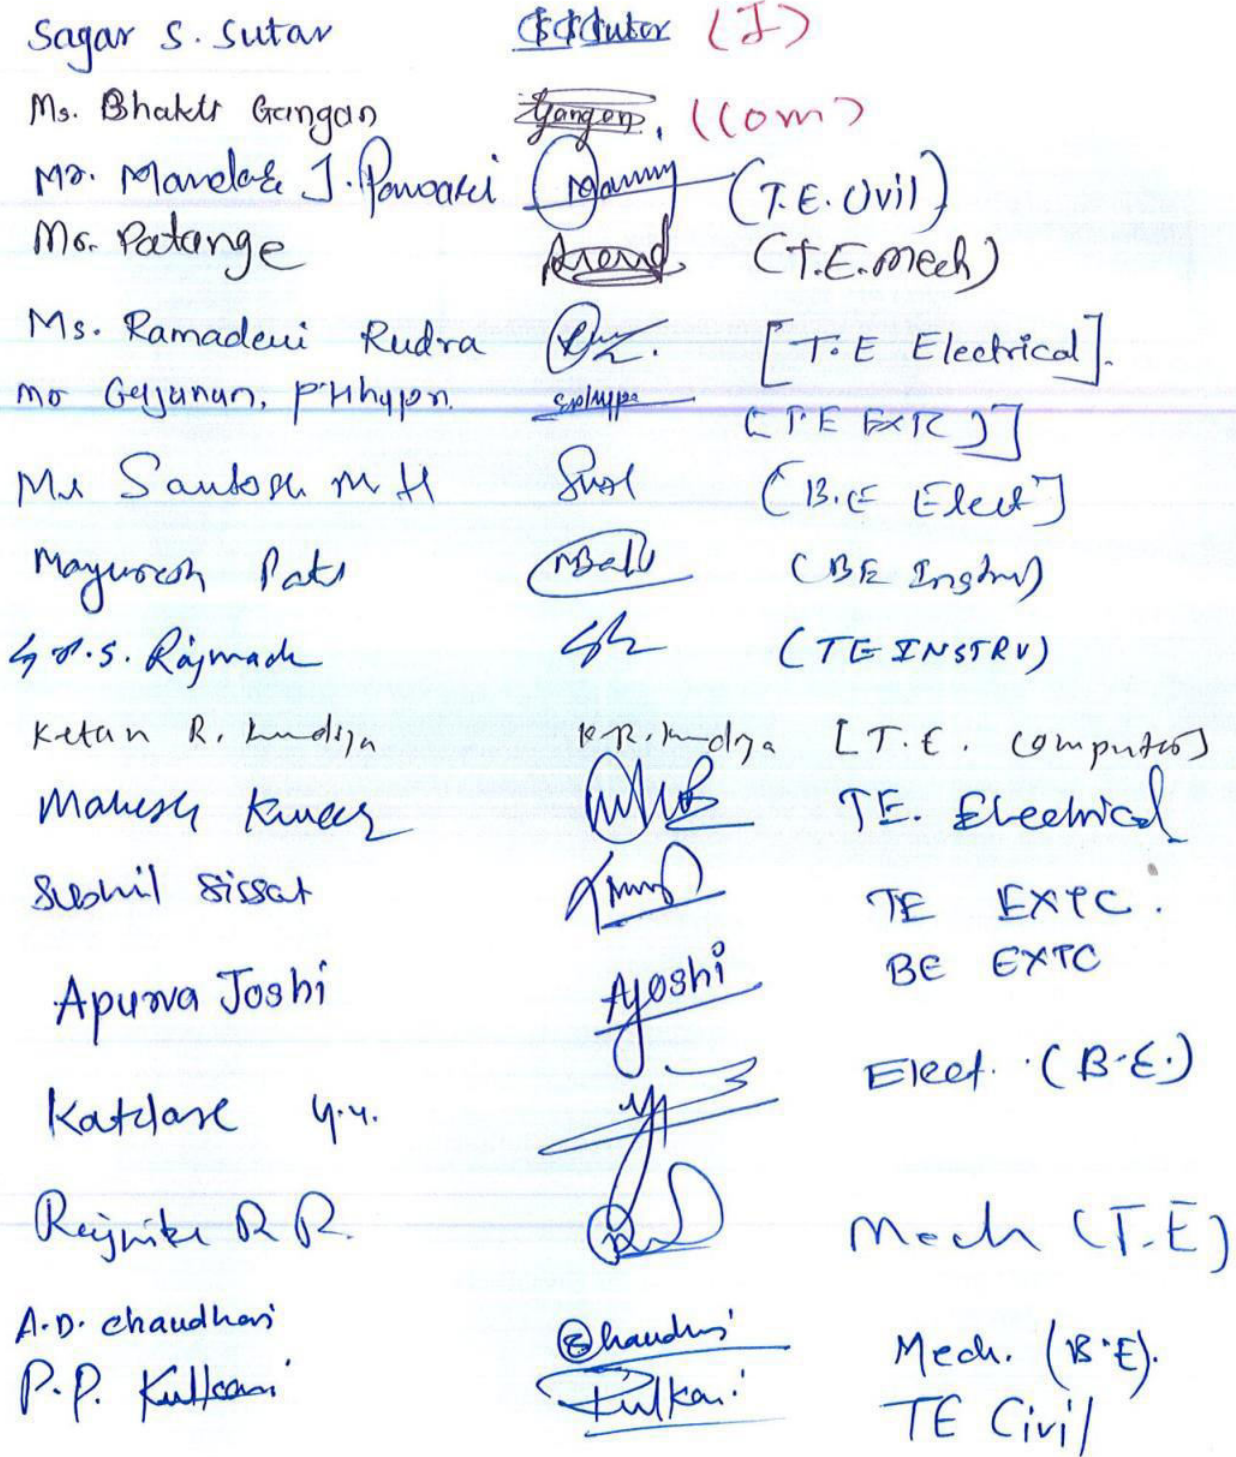 Sagar S. Sutar SSSutar (I)
Ms. Bhakti Gangan Gangan. (Com)
Mr. Mandar J. Pawari (T.E. Civil)
Mr. Patange (T.E. Mech)
Ms. Ramadevi Rudra [T.E Electrical].
Mr Gajanan. [T.E EXTC]]
Mr Santosh M H [B.E Elect]
Mayuresh Patil (BE Instru)
S. Rajmade (TE INSTRU)
Ketan R. Kundiya K.R. Kundiya [T.E. Computer]
Mahesh Kumar TE. Electrical
Sushil Sissat TE EXTC.
Apurva Joshi AJoshi BE EXTC
Katdare Y.Y. Elect. (B.E.)
R.R. Mech (T.E)
A.D. Chaudhari Chaudhari Mech. (B.E).
P.P. Kulkarni Kulkarni TE Civil